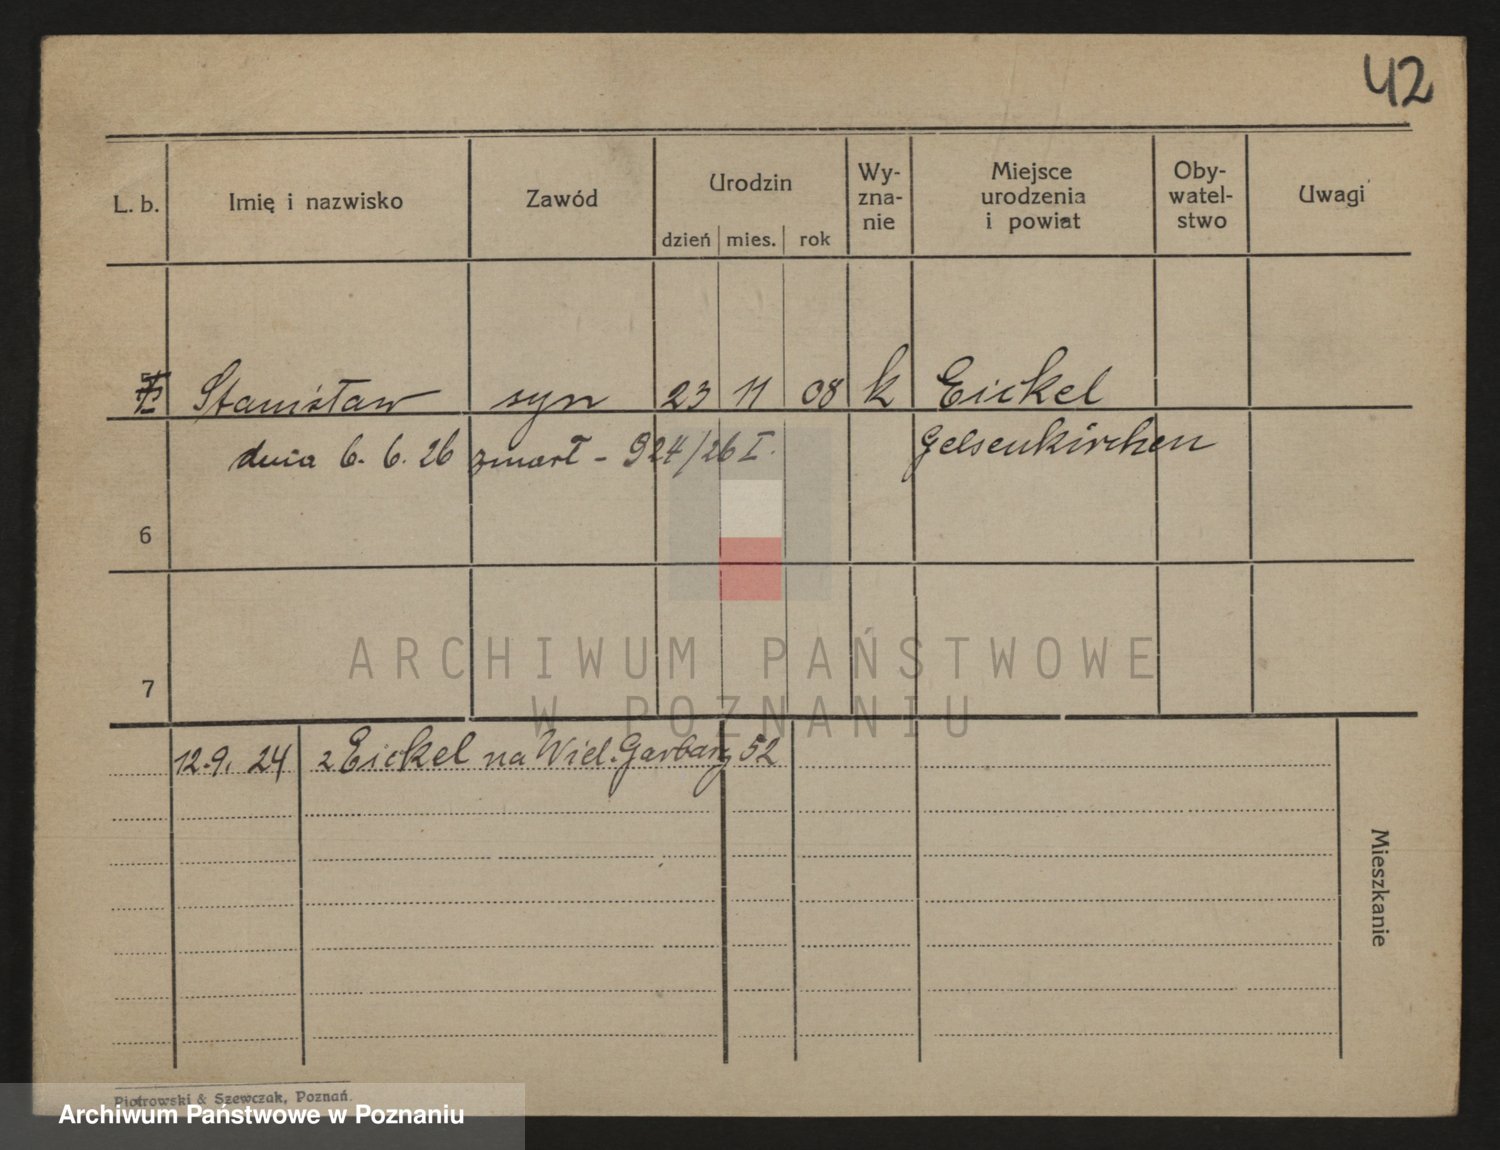 42
L. b. Imię i nazwisko Zawód Urodzin Wy-zna-nie Miejsce urodzenia i powiat Oby-watel-stwo Uwagi
dzień mies. rok
Stanisław syn 23 11 08 k Eickel
dnia 6. 6. 26 zmarł - 924/26 I. Gelsenkirchen
6
7
ARCHIWUM PAŃSTWOWE
W POZNANIU
12.9. 24 z Eickel na Wiel. Garbary 52
Mieszkanie
Piotrowski & Szewczak, Poznań.
Archiwum Państwowe w Poznaniu